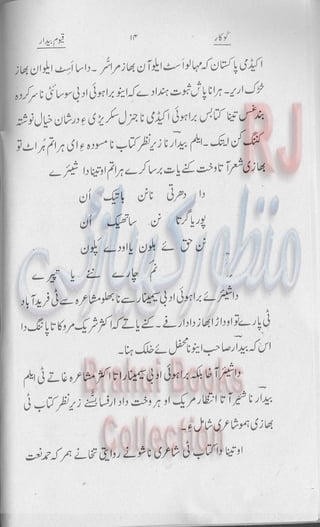 گوکار ۱۴ قیوم بیدار
اکیڈمی پاکستان کہ مہالو اسٹ ایلو آن بھاز مراسُر۔ داسا اسٹ ایلو ان بھاز
خڑک اریر۔ ہرانا پاش ثبوت ہندادے کہ اینو براہوئی ادبی سوسائٹی نا سرکردہ
بندغس تینا کتابس براہوئی اکیڈمی نا جنرل سکریڑی ءِ درشان خیال نوشتہ
کننگ کن ایتک۔ ایلم بیدار نا زیر نظر کتاب نا مسودہ ءِ ای ہراتم ہُراٹ تو
بھازی شعر آتا وخت کنے یات برسا کرے ہراتم اوتینا دا شیئرے
دا دھرتی نا نن پانیک اُن
پوریا گرتا نن ساتھیک اُن
نن حق ئے ہلون یا اودے پلون
نُم چارے ننے یا تیرے
داشیئرئے براہوئی ادبی سیمینارے نا پھلو مشاعرہ سے ٹی فرید آباد
ٹی پارے تو اوداڑا بھاز داد ارفے۔ کنے یاتے کہ اکثر شریک مروکا تا پاننگ دا
اس کہ بیدار صاحب اینو نا محفل ئے خلک ہنا۔
داشیئر آخا بلکہ براہوئی ادبی سیمینار اتا اکثر مشاعرہ غاتے ٹی ایلم
بیدار نا شیئر آتا انتظار مریک او ہر وخت داد ارفسا نئے زیر نظر کتاب ٹی
بھازی ہمو شاعری شامل ءِ۔
اوتینا دا کتاب ٹی شاعری نا شونے روایتی تخانے ہمر کہ حمد نعت
RJ
منظور کیازئی
Brahui Books
Collection